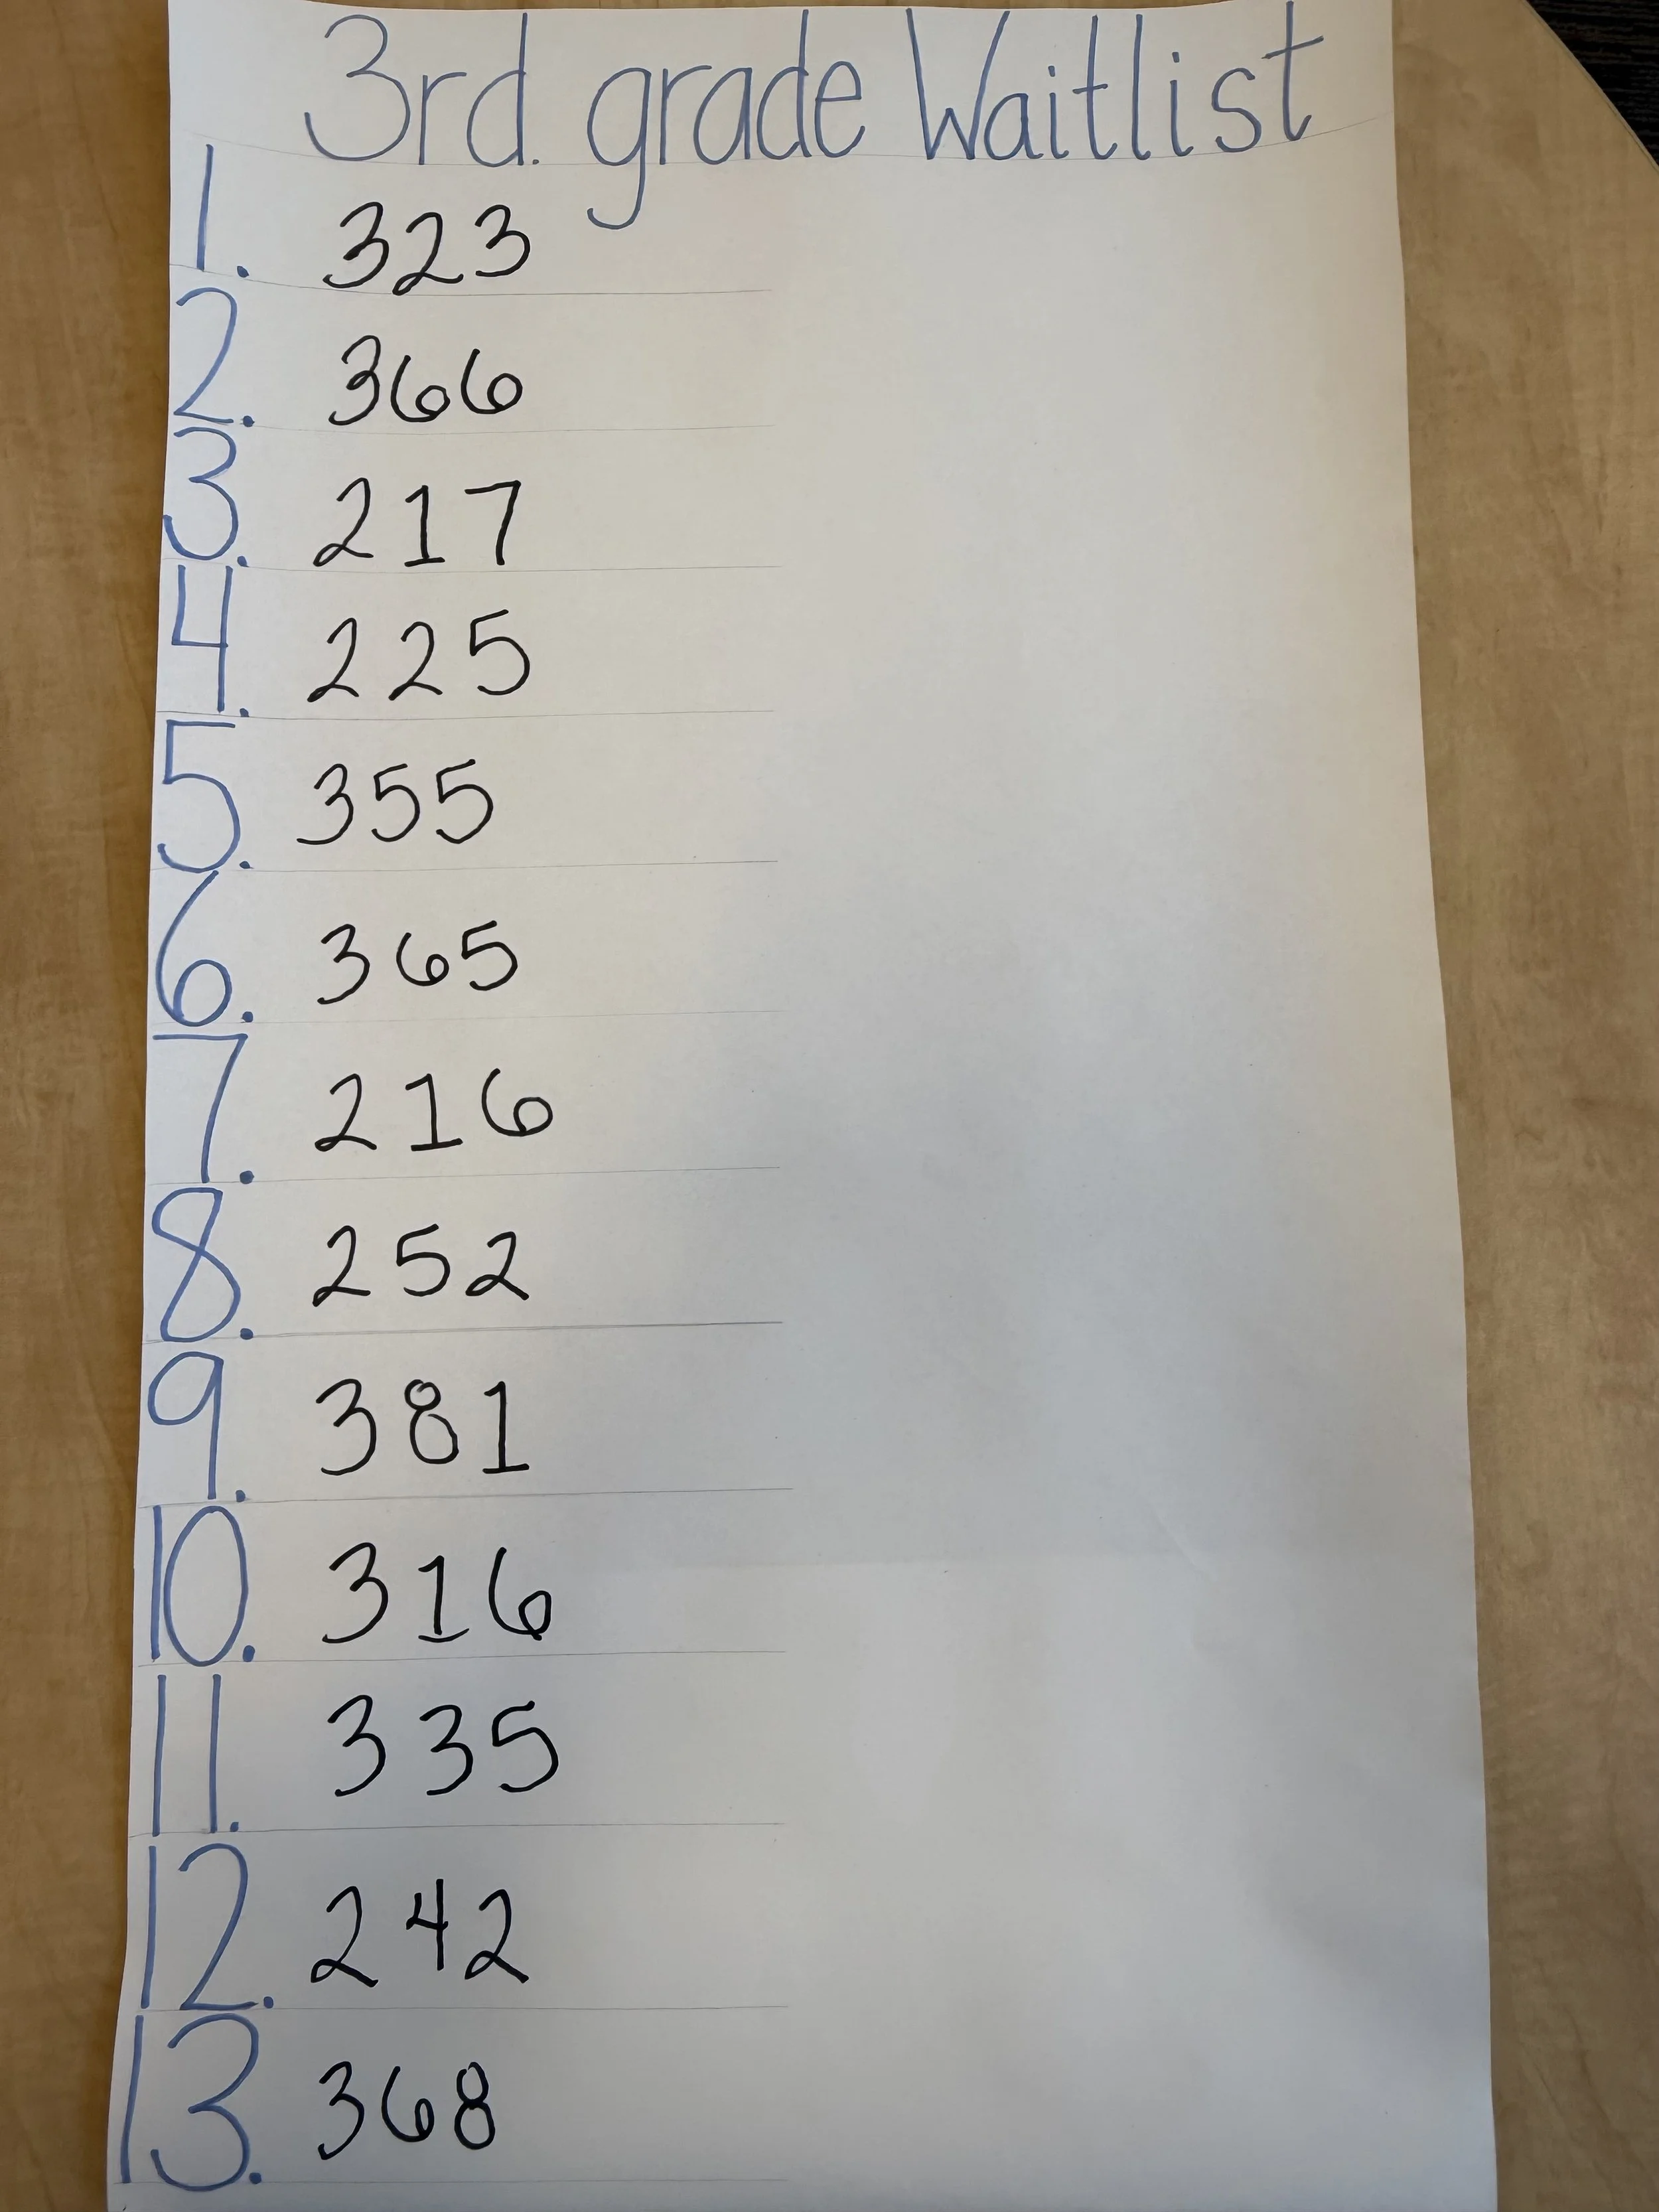 3rd. grade Waitlist
1. 323
2. 366
3. 217
4. 225
5. 355
6. 365
7. 216
8. 252
9. 381
10. 316
11. 335
12. 242
13. 368